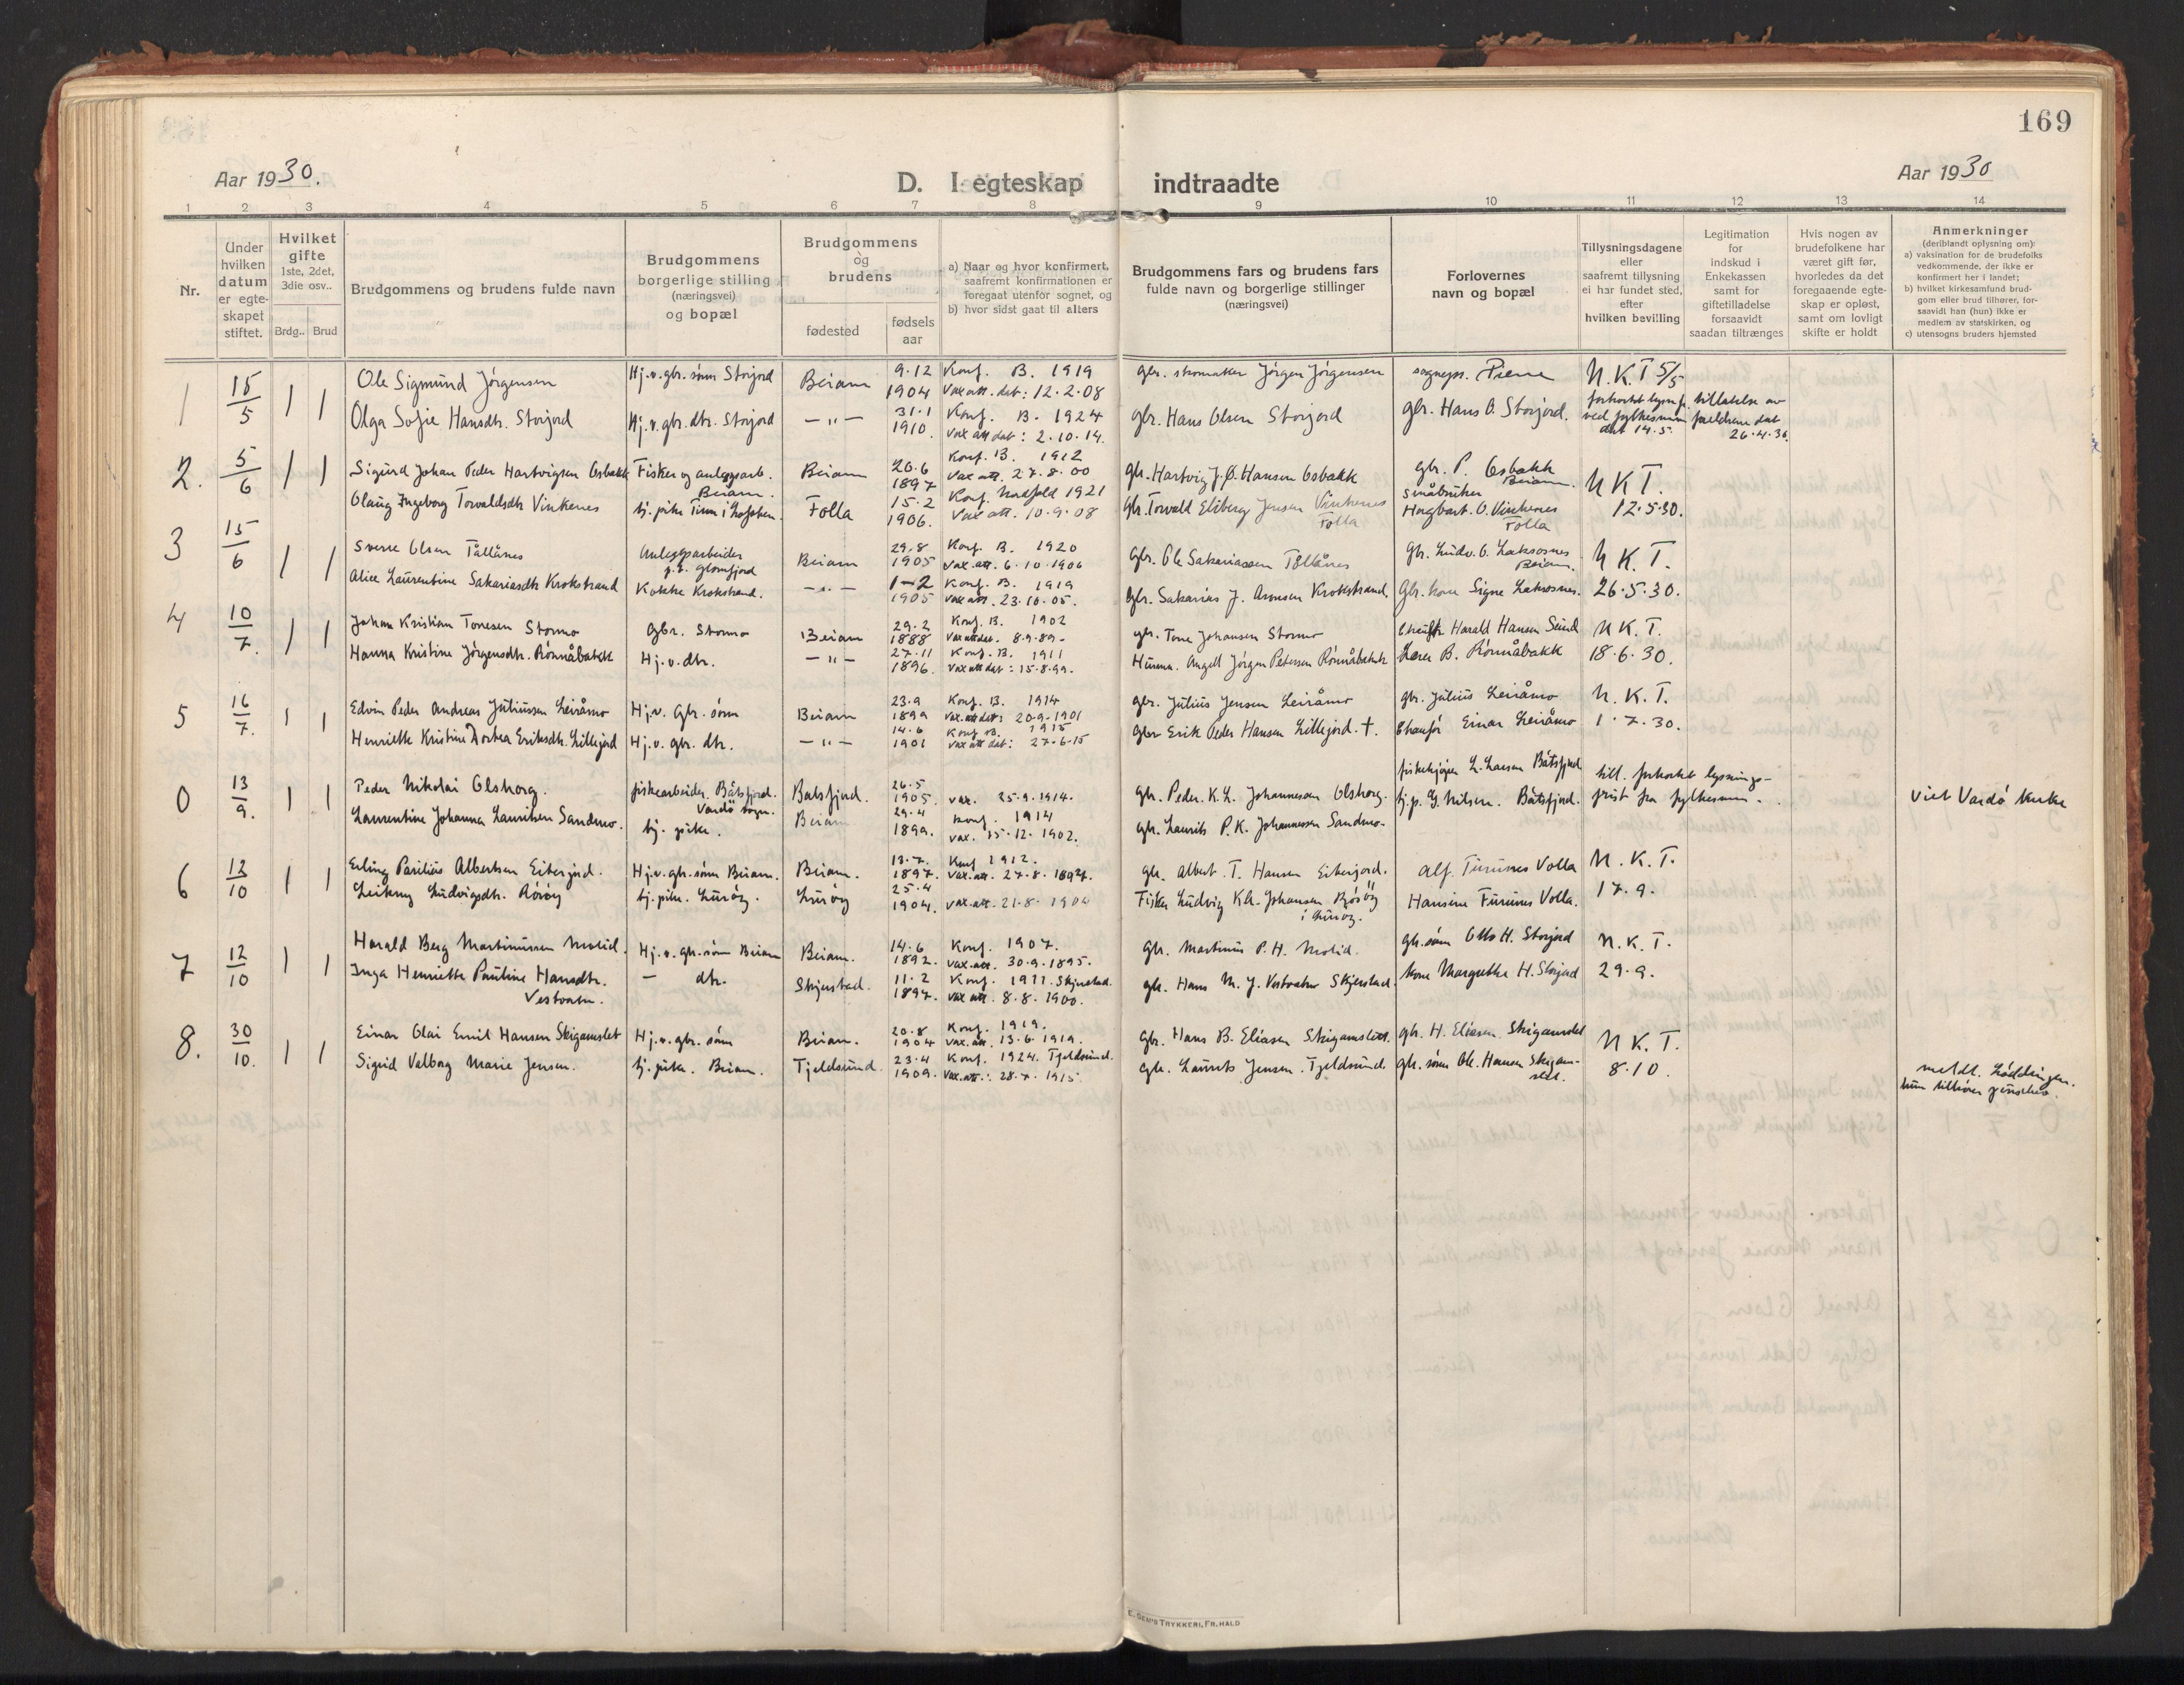 169
Aar 1930.
D. I egteskap indtraadte
Aar 1930
1 2 3 4 5 6 7 8 9 10 11 12 13 14
Nr.
Under hvilken datum er egteskapet stiftet.
Hvilket gifte 1ste, 2det, 3die osv..
Brdg.. Brud
Brudgommens og brudens fulde navn
Brudgommens borgerlige stilling (næringsvei) og bopæl
Brudgommens og brudens
fødested
fødsels aar
a) Naar og hvor konfirmert, saafremt konfirmationen er foregaat utenfor sognet, og
b) hvor sidst gaat til alters
Brudgommens fars og brudens fars fulde navn og borgerlige stillinger (næringsvei)
Forlovernes navn og bopæl
Tillysningsdagene eller saafremt tillysning ei har fundet sted, efter hvilken bevilling
Legitimation for indskud i Enkekassen samt for giftetilladelse forsaavidt saadan tiltrænges
Hvis nogen av brudefolkene har været gift før, hvorledes da det foregaaende egteskap er opløst, samt om lovligt skifte er holdt
Anmerkninger (deriblandt oplysning om):
a) vaksination for de brudefolks vedkommende, der ikke er konfirmert her i landet;
b) hvilket kirkesamfund brudgom eller brud tilhører, forsaavidt han (hun) ikke er medlem av statskirken, og
c) utensogns bruders hjemsted
1 15/5 1 1 Ole Sigmund Jørgensen Hj.v. gbr. sønn Storjord Beiarn 9.12 1904 Konf. B. 1919 Vax att. dat: 12.2.08 gbr. skomaker Jørgen Jørgensen sognepr. Piene N.K.T 5/5
Olga Sofie Hansdtr. Storjord Hj.v. gbr. dtr. Storjord — „ — 31.1 1910. Konf. B. 1924 Vax att dat: 2.10.14. gbr. Hans Olsen Storjord gbr. Hans O. Storjord. forkortet lysn.fr. ved fylkesmann dat 14.5. tillatelse av foreldrene dat 26.4.30.
2. 5/6 1 1 Sigurd Johan Peder Hartvigsen Osbakk Fisker og anleggsarb. Beiarn. Beiarn 20.6 1897 Konf. B. 1912 Vax att. 27.8.00 gbr. Hartvig J. Ø. Hansen Osbakk gbr. P. Osbakk Beiarn. N K T.
Olaug Ingeborg Torvaldsdtr Vinkenes tj. pike Tinn i Lofoten. Folla 15.2 1906. Konf. Nordfold 1921 Vax att. 10.9.08 Gbr. Torvald Eliberg Jensen Vinkenes Folla småbruker Hagbart O. Vinkenes Folla 12.5.30.
3 15/6 1 1 Sverre Olsen Tållånes Anleggsarbeider p.t. Glomfjord Beiarn 29.8 1905 Konf. B. 1920 Vax att. 6.10.1906 gbr. Ole Sakariassen Tållånes Gbr. Ludv. O. Laksosnes Beiarn. N K T.
Alice Laurentine Sakariasdtr Krokstrand Kokke Krokstrand. — „ — 1-2 1905 Konf. B. 1919 Vax att. 23.10.05. gbr. Sakarias J. Aronsen Krokstrand Gbr. kone Signe Laksosnes. 26.5.30.
4 10/7. 1 1 Johan Kristian Tonesen Stormo Gbr. Stormo Beiarn 29.2 1888 Konf. B. 1902 Vax att dat. 8.9.89 gbr. Tone Johansen Stormo Chauffr Harald Hansen Seines N K. T.
Hanna Kristine Jørgensdtr. Rönnåbakk Hj.v. dtr. — „ — 27.11 1896. Konf. B. 1911 Vax att dat: 15.8.99. Angell Jørgen Petersen Rönnåbakk Lærer B. Rönnåbakk 18.6.30.
5 16/7. 1 1 Edvin Peder Andreas Juliussen Leiråmo Hj.v. Gbr. sønn Beiarn 23.9 1899 Konf. B. 1914 Vax. att dat: 20.9.1901 gbr. Julius Jensen Leiråmo gbr. Julius Leiråmo N. K. T.
Henriette Kristine Dortea Eriksdtr. Lillejord Hj.v. gbr. dtr. — „ — 14.6 1901 Konf. B. 1915 Vax att dat: 27.6.15 gbr Erik Peder Hansen Lillejord. † Chaufør Einar Leiråmo 1.7.30.
0 13/9. 1 1 Peder Nikolai Olshorg. fiskearbeider. Båtsfjord. Vardö sogn. Båtsfjord. 26.5 1905. vax. 25.9.1914. gbr. Peder. K. L. Johannesen Olshorg. fiskekjøper L. Larsen Båtsfjord till. forkortet lysnings- Viet Vardö kirke
Laurentine Johanna Lauritsen Sandmo. tj. pike. Beiarn 29.4 1899. Konf. 1914 vax. 15.12.1902. gbr. Laurits P. K. Johannessen Sandmo. tj.p. G. Nilsen. Båtsfjord. frist fra fylkesmann.
6 12/10 1 1 Erling Parilius Albertsen Eiterjord. Hj.v. gbr. sønn Beiarn. Beiarn. 13.7. 1897. Konf 1912. Vax. att. 27.8.1897. gbr. Albert. T. Hansen Eiterjord. Alf. Furunes Volla N. K. T.
Ludvigsdtr. Rörøy tj. pike. Lurøy. Lurøy 25.4 1904. vax. att. 21.8.1904 Fisker Ludvig Kr. Johansen Rörøy i Lurøy. Hansine Furunes Volla. 17.9.
7 12/10 1 1 Harald Berg Martinussen Molid. Hj.v. gbr. sønn Beiarn Beiarn. 14.6 1892. Konf. 1907. vax. att. 30.9.1895. Gbr. Martinus P. H. Molid. gbr. sønn Otto H. Storjord N. K. T.
Inga Henriette Pauline Hansdtr. Vestvatn. — dtr. Skjerstad. 11.2 1897. Konf. 1911. Skjerstad. vax att. 8.8.1900. gbr. Hans M. J. Vestvatn Skjerstad. kone Margrethe H. Storjord 29.9.
8. 30/10. 1 1 Einar Olai Emil Hansen Skigamslet Hj.v. gbr. sønn Beiarn. 20.8 1904 Konf. 1919. vax. att. 13.6.1919. Gbr. Hans B. Eliasen Skigamslett. gbr. H. Eliasen Skigamslet N K. T.
Sigrid Valborg Marie Jensen. tj. pike. Beiarn. Tjeldsund 23.4 1909. Konf. 1924. Tjeldsund. Vax. att.: 28.7.1915 gbr. Laurits Jensen. Tjeldsund. gbr. sønn Ole. Hansen Skigamslet. 8.10. meldt. Lödingen.
E. SEM'S TRYKKERI, FR. HALD